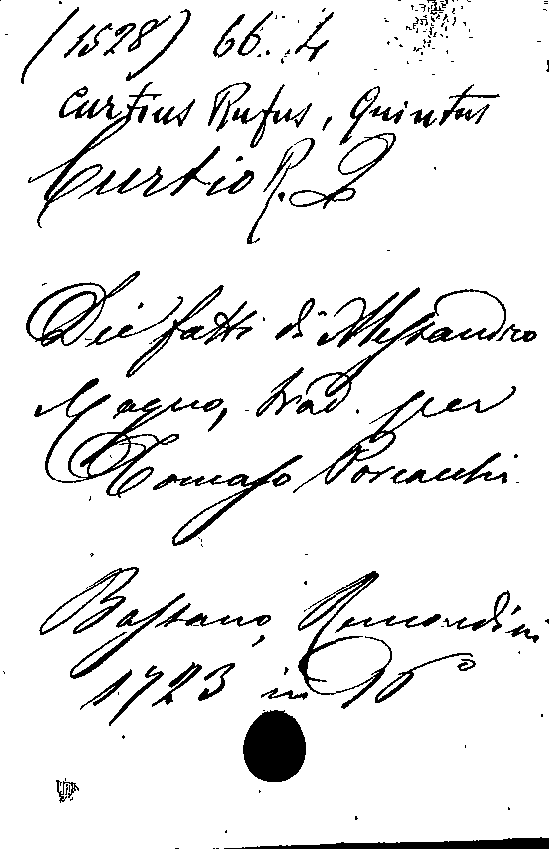 (1528) 66. 4
Curtius Rufus, Quintus
Curtio R. Q
Die fatti di Alessandro
Magno, trad. per
Tomaso Porcacchi
Bassano, Remondini
1723 in 16°